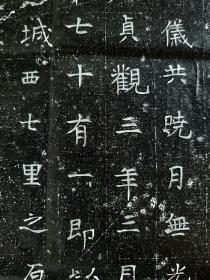 儀共曉月無光
貞觀三年三月
七十有一即以
城西七里之原